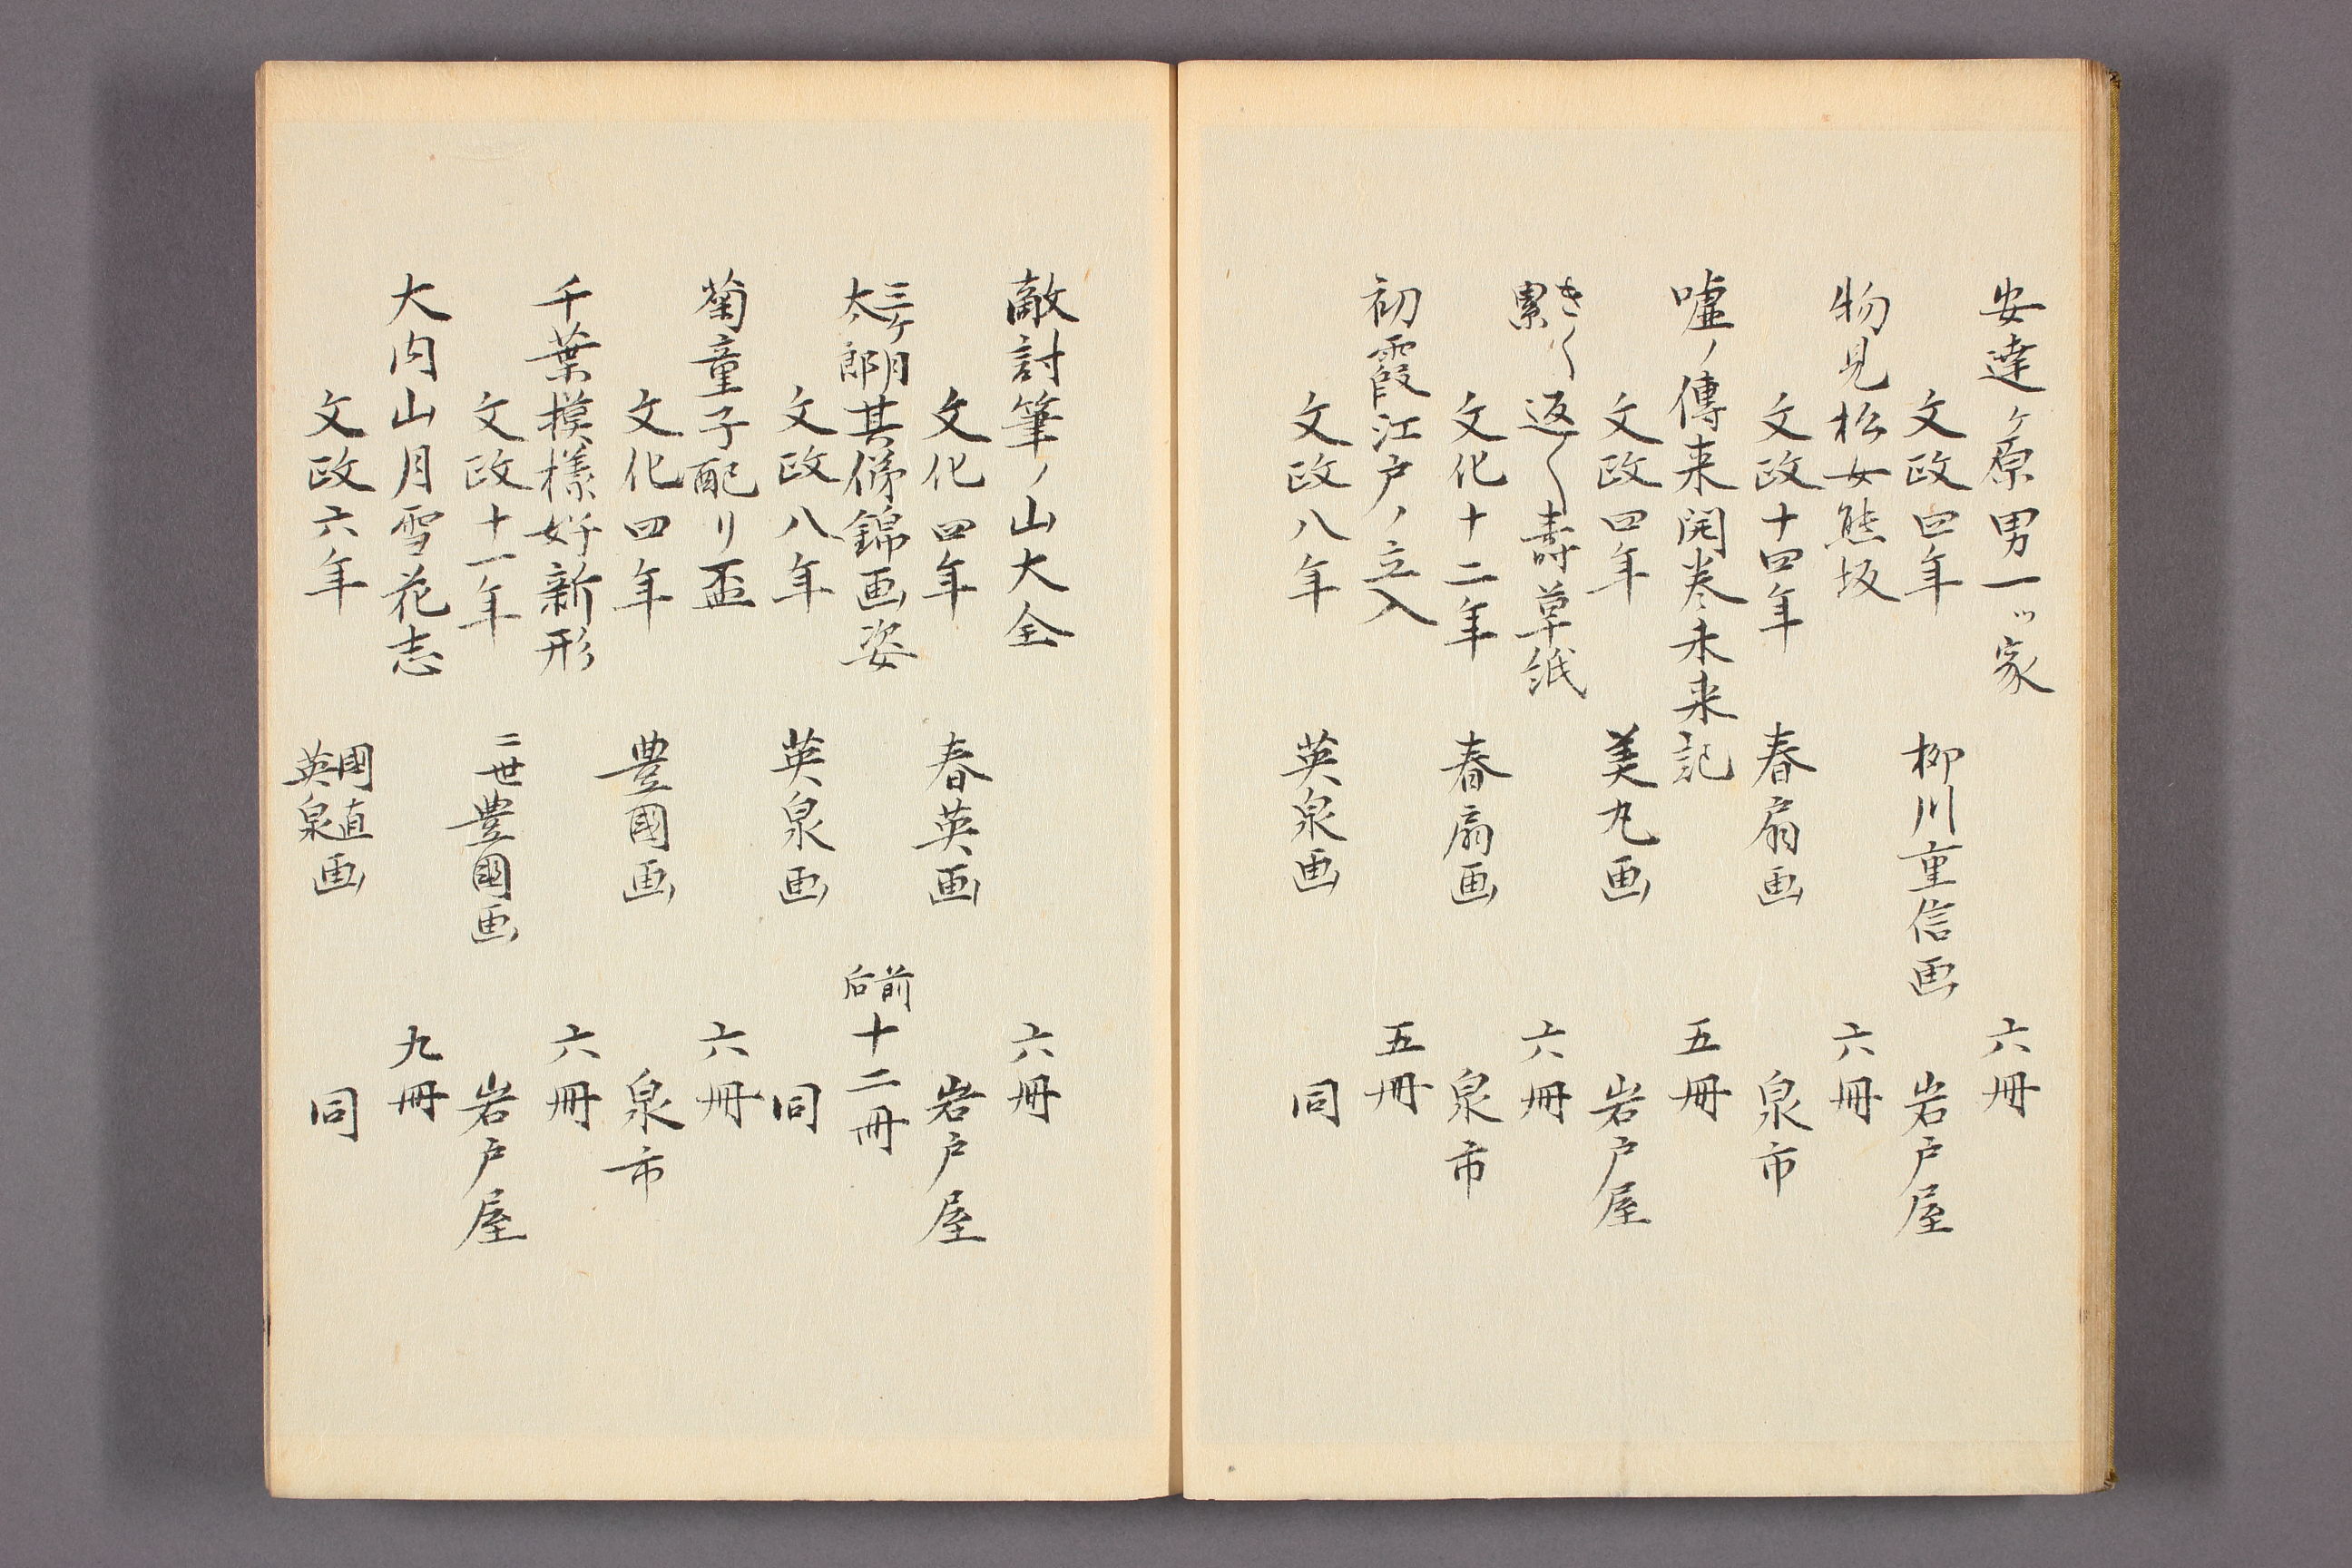 安達ヶ原男一ッ家　六冊
文政四年　柳川重信画　岩戸屋
物見松女熊坂　六冊
文政十四年　春扇画　泉市
嘘ノ傳来開巻未来記　五冊
文政四年　美丸画　岩戸屋
き〱累返〱壽草紙　六冊
文化十二年　春扇画　泉市
初霞江戸ノ立入　五冊
文政八年　英泉画　同
敵討筆ノ山大全　六冊
文化四年　春英画　岩戸屋
三ヶ月太郎其俤錦画姿　前后十二冊
文政八年　英泉画　同
菊童子配リ盃　六冊
文化四年　豊國画　泉市
千葉模様好新形　六冊
文政十一年　二世豊國画　岩戸屋
大内山月雪花志　九冊
文政六年　國直英泉画　同